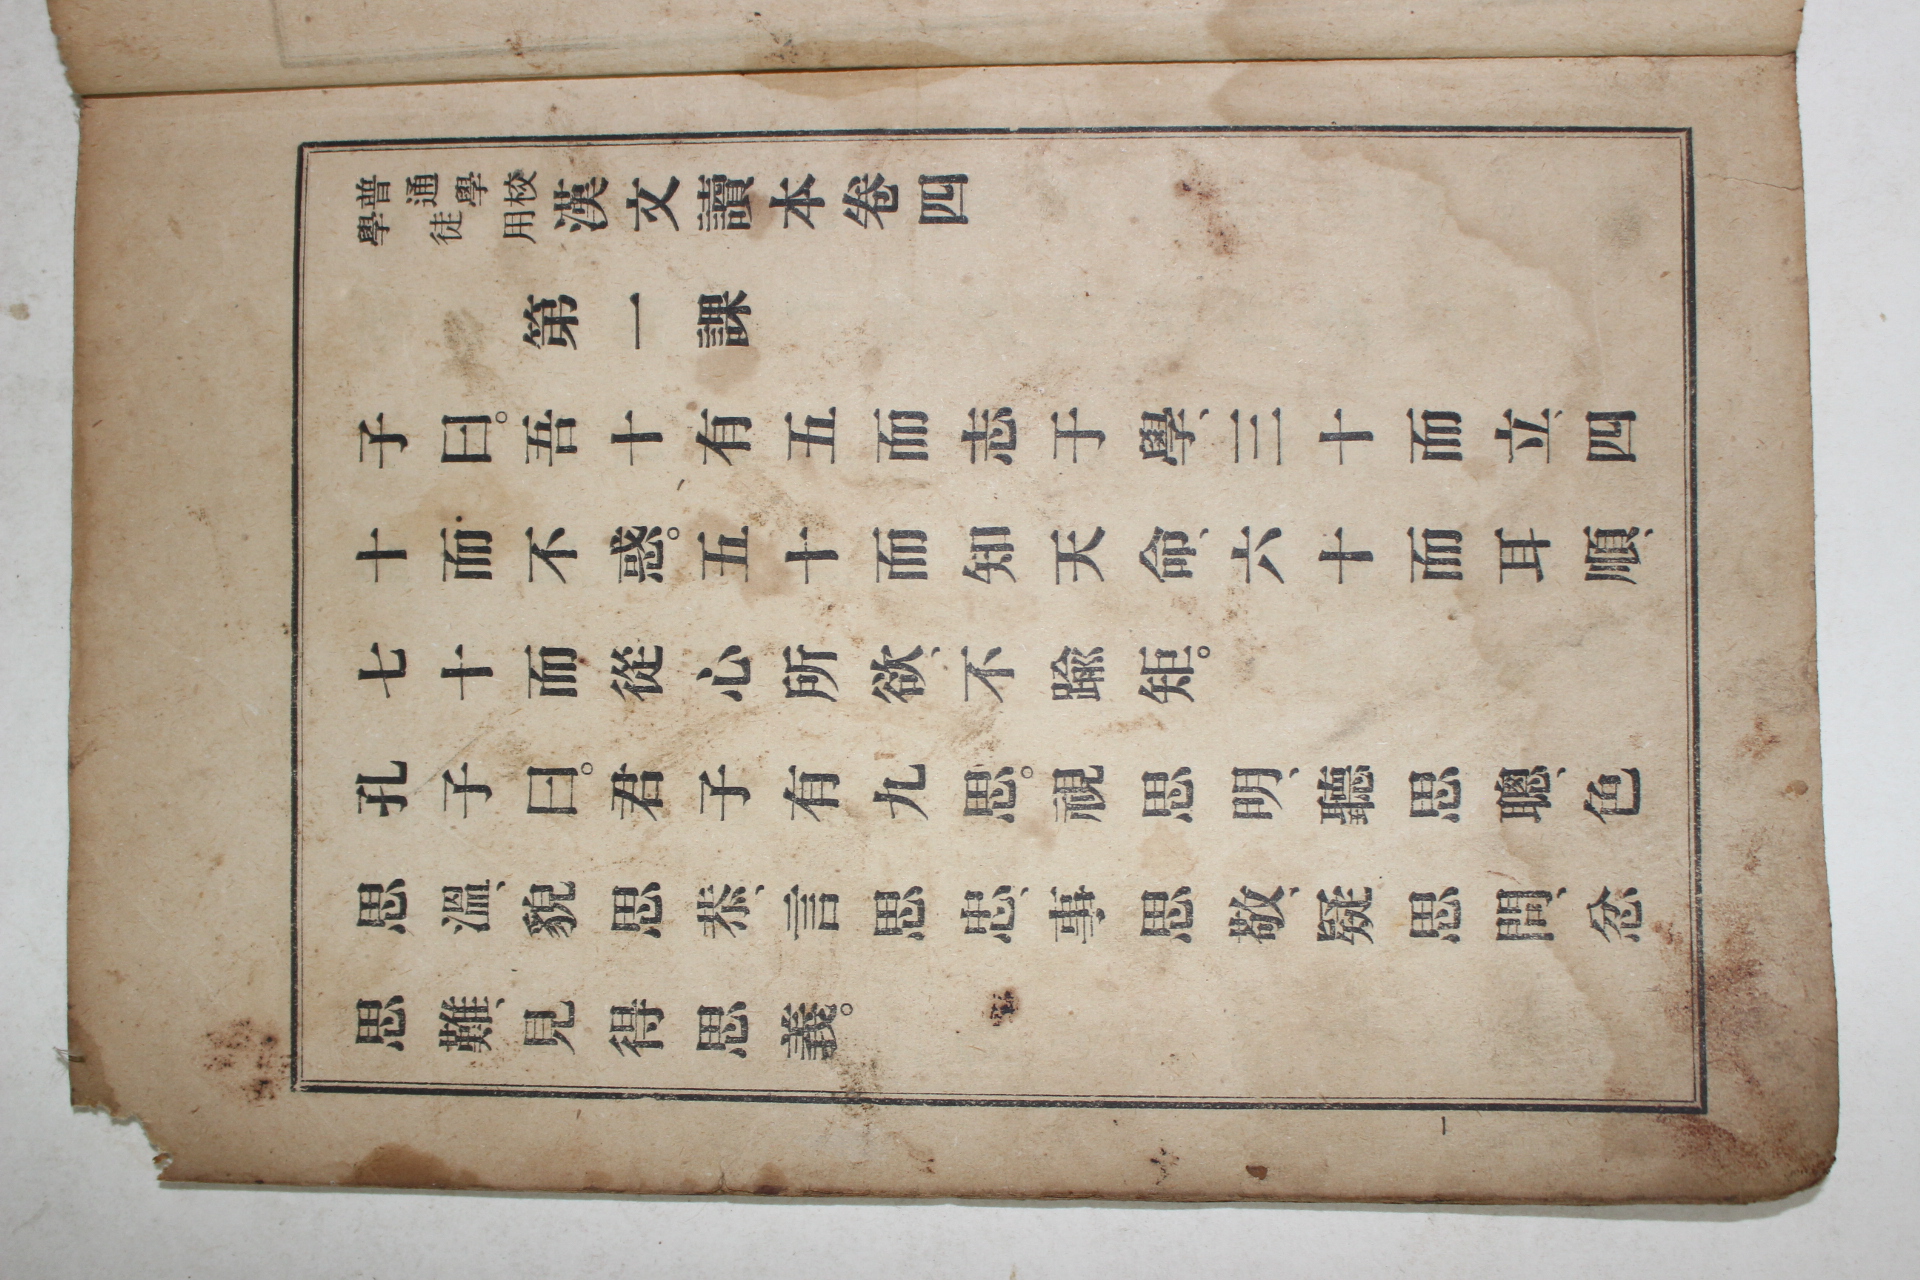 普通學校學徒用漢文讀本卷四
第一課
子曰。吾十有五而志于學、三十而立、四
十而不惑。五十而知天命、六十而耳順、
七十而從心所欲、不踰矩。
孔子曰。君子有九思。視思明、聽思聰、色
思溫、貌思恭、言思忠、事思敬、疑思問、忿
思難、見得思義。
一